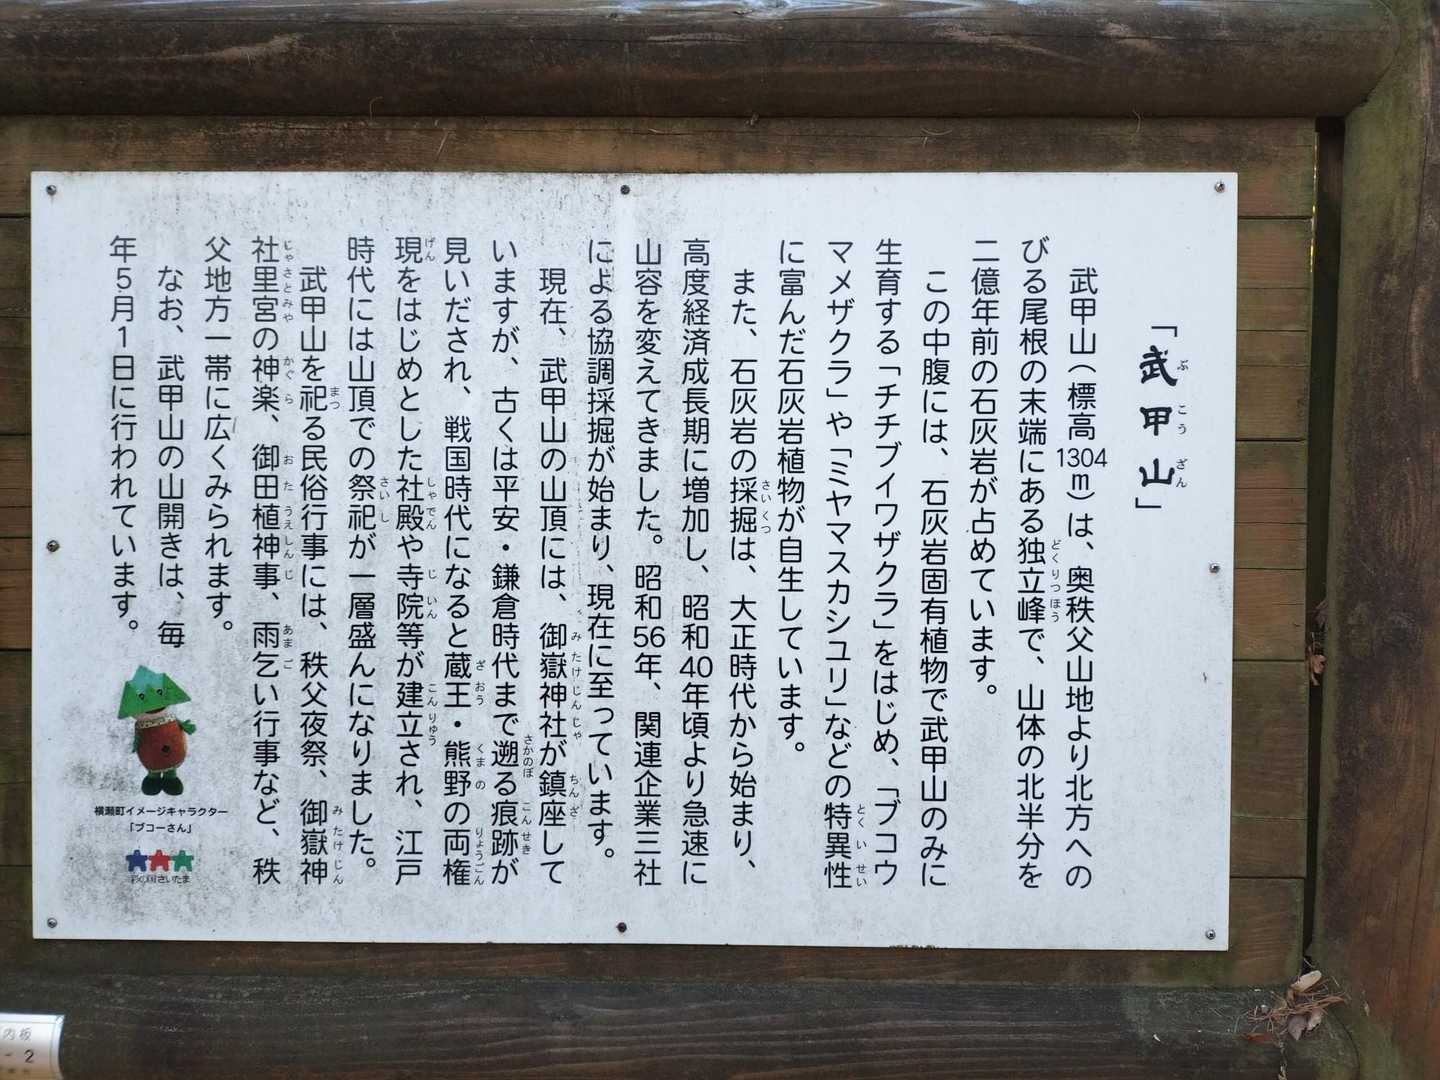 「武甲山」
ぶこうざん
武甲山(標高1304m)は、奥秩父山地より北方への
びる尾根の末端にある独立峰で、山体の北半分を
どくりつほう
二億年前の石灰岩が占めています。
この中腹には、石灰岩固有植物で武甲山のみに
生育する「チチブイワザクラ」をはじめ、「ブコウ
マメザクラ」や「ミヤマスカシユリ」などの特異性
とくいせい
に富んだ石灰岩植物が自生しています。
また、石灰岩の採掘は、大正時代から始まり、
さいくつ
高度経済成長期に増加し、昭和40年頃より急速に
山容を変えてきました。昭和56年、関連企業三社
による協調採掘が始まり、現在に至っています。
現在、武甲山の山頂には、御嶽神社が鎮座して
みたけじんじゃ ちんざ
いますが、古くは平安・鎌倉時代まで遡る痕跡が
さかのぼ こんせき
見いだされ、戦国時代になると蔵王・熊野の両権
ざおう くまの りょうごん
現をはじめとした社殿や寺院等が建立され、江戸
げん しゃでん じいん こんりゅう
時代には山頂での祭祀が一層盛んになりました。
さいし
武甲山を祀る民俗行事には、秩父夜祭、御嶽神
まつ みたけじん
社里宮の神楽、御田植神事、雨乞い行事など、秩
じゃさとみや かぐら おたうえしんじ あまご
父地方一帯に広くみられます。
なお、武甲山の山開きは、毎
年5月1日に行われています。
横瀬町イメージキャラクター
「ブコーさん」
彩の国さいたま
内板
-2